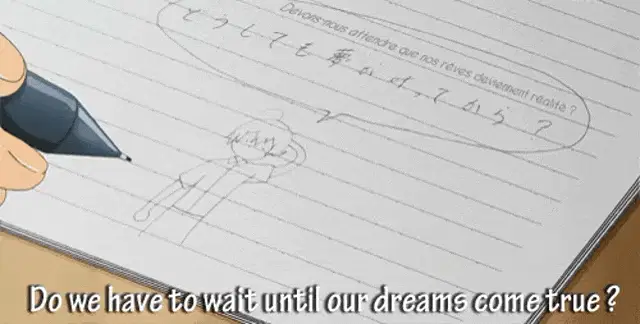 Devons-nous attendre que nos rêves deviennent réalité ?
どうしても夢が叶ってから?
Do we have to wait until our dreams come true?